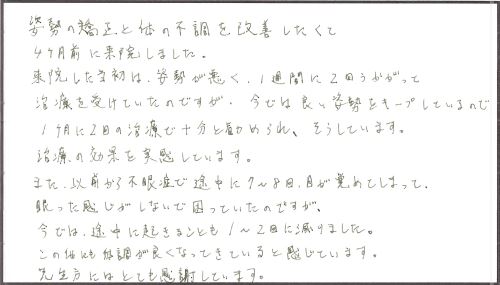 姿勢の矯正と体の不調を改善したくて
4ヶ月前に来院しました。
来院した当初は、姿勢が悪く、1週間に2回うかがって
治療を受けていたのですが、今では良い姿勢をキープしているので
1ヶ月に2回の治療で十分と勧められ、そうしています。
治療の効果を実感しています。
また、以前から不眠症で途中に7〜8回、目が覚めてしまって、
眠った感じがしないで困っていたのですが、
今では、途中に起きることも1〜2回に減りました。
この他にも体調が良くなってきていると感じています。
先生方にはとても感謝しています。